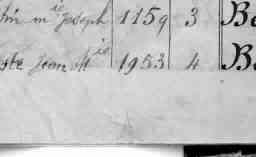 m ie Joseph 1159 3 Be
Jean M ie 1953 4 B